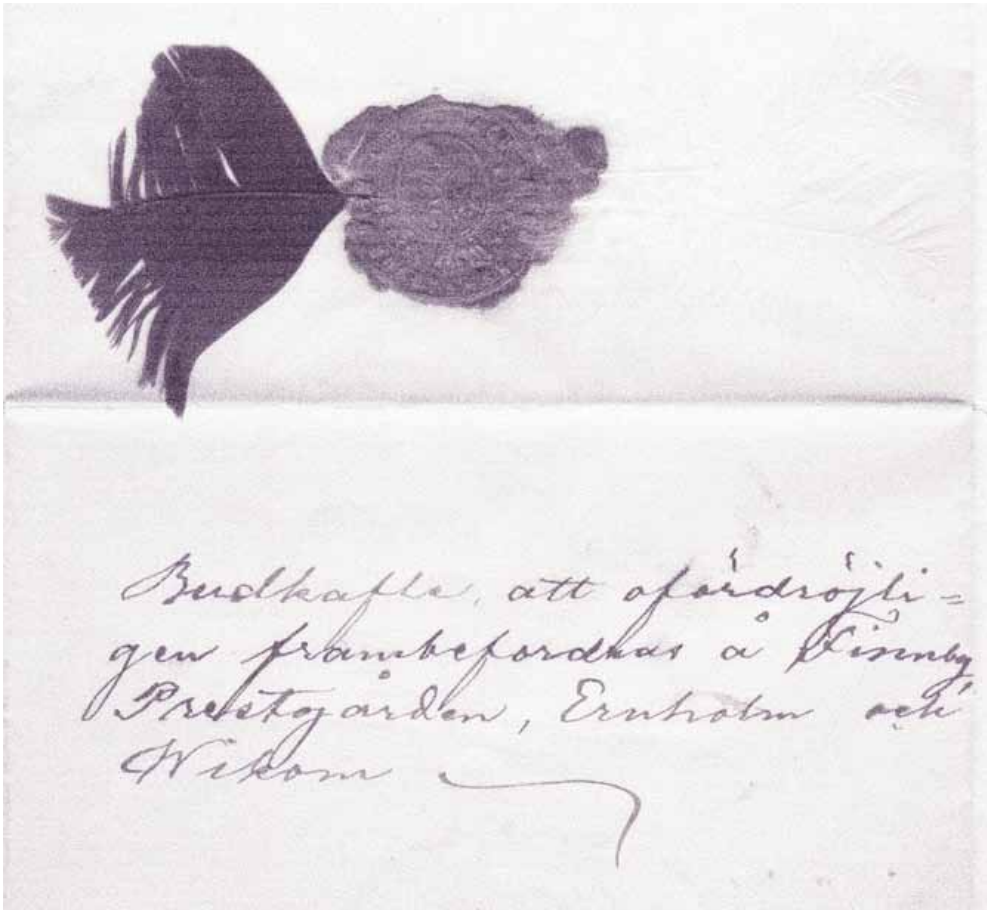 Budkafle, att ofördröjli=
gen frambefordras å Finnby
Prestgården, Ernholm och
Wikom